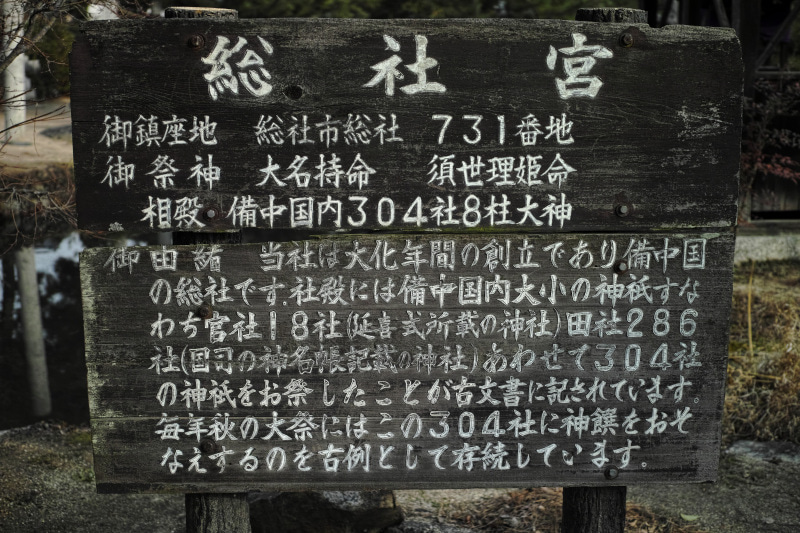 総社宮
御鎮座地 総社市総社 731番地
御祭神 大名持命 須世理姫命
相殿 備中国内304社8柱大神
御由緒 当社は大化年間の創立であり備中国
の総社です.社殿には備中国内大小の神祇すな
わち官社18社(延喜式所載の神社)田社286
社(国司の神名帳記載の神社)あわせて304社
の神祇をお祭したことが古文書に記されています。
毎年秋の大祭にはこの304社に神饌をおそ
なえするのを古例として存続しています。